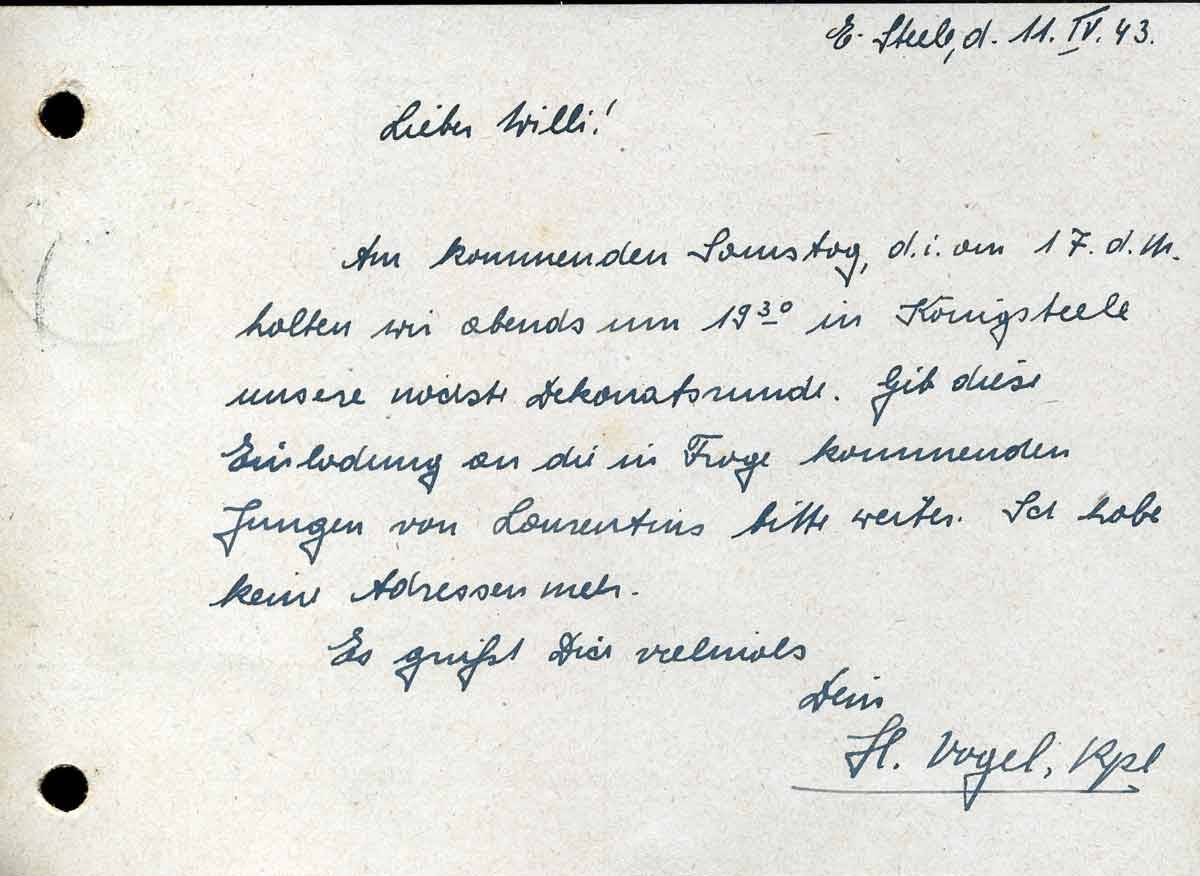 E. Steele, d. 11. IV. 43.
Lieber Willi!
Am kommenden Samstag, d.i. am 17. d. M.
halten wir abends um 19³⁰ in Königsteele
unsere nächste Dekanatsrunde. Gib diese
Einladung an die in Frage kommenden
Jungen von Laurentius bitte weiter. Ich habe
keine Adressen mehr.
Es grüßt Dich vielmals
Dein
H. Vogel, Kpl